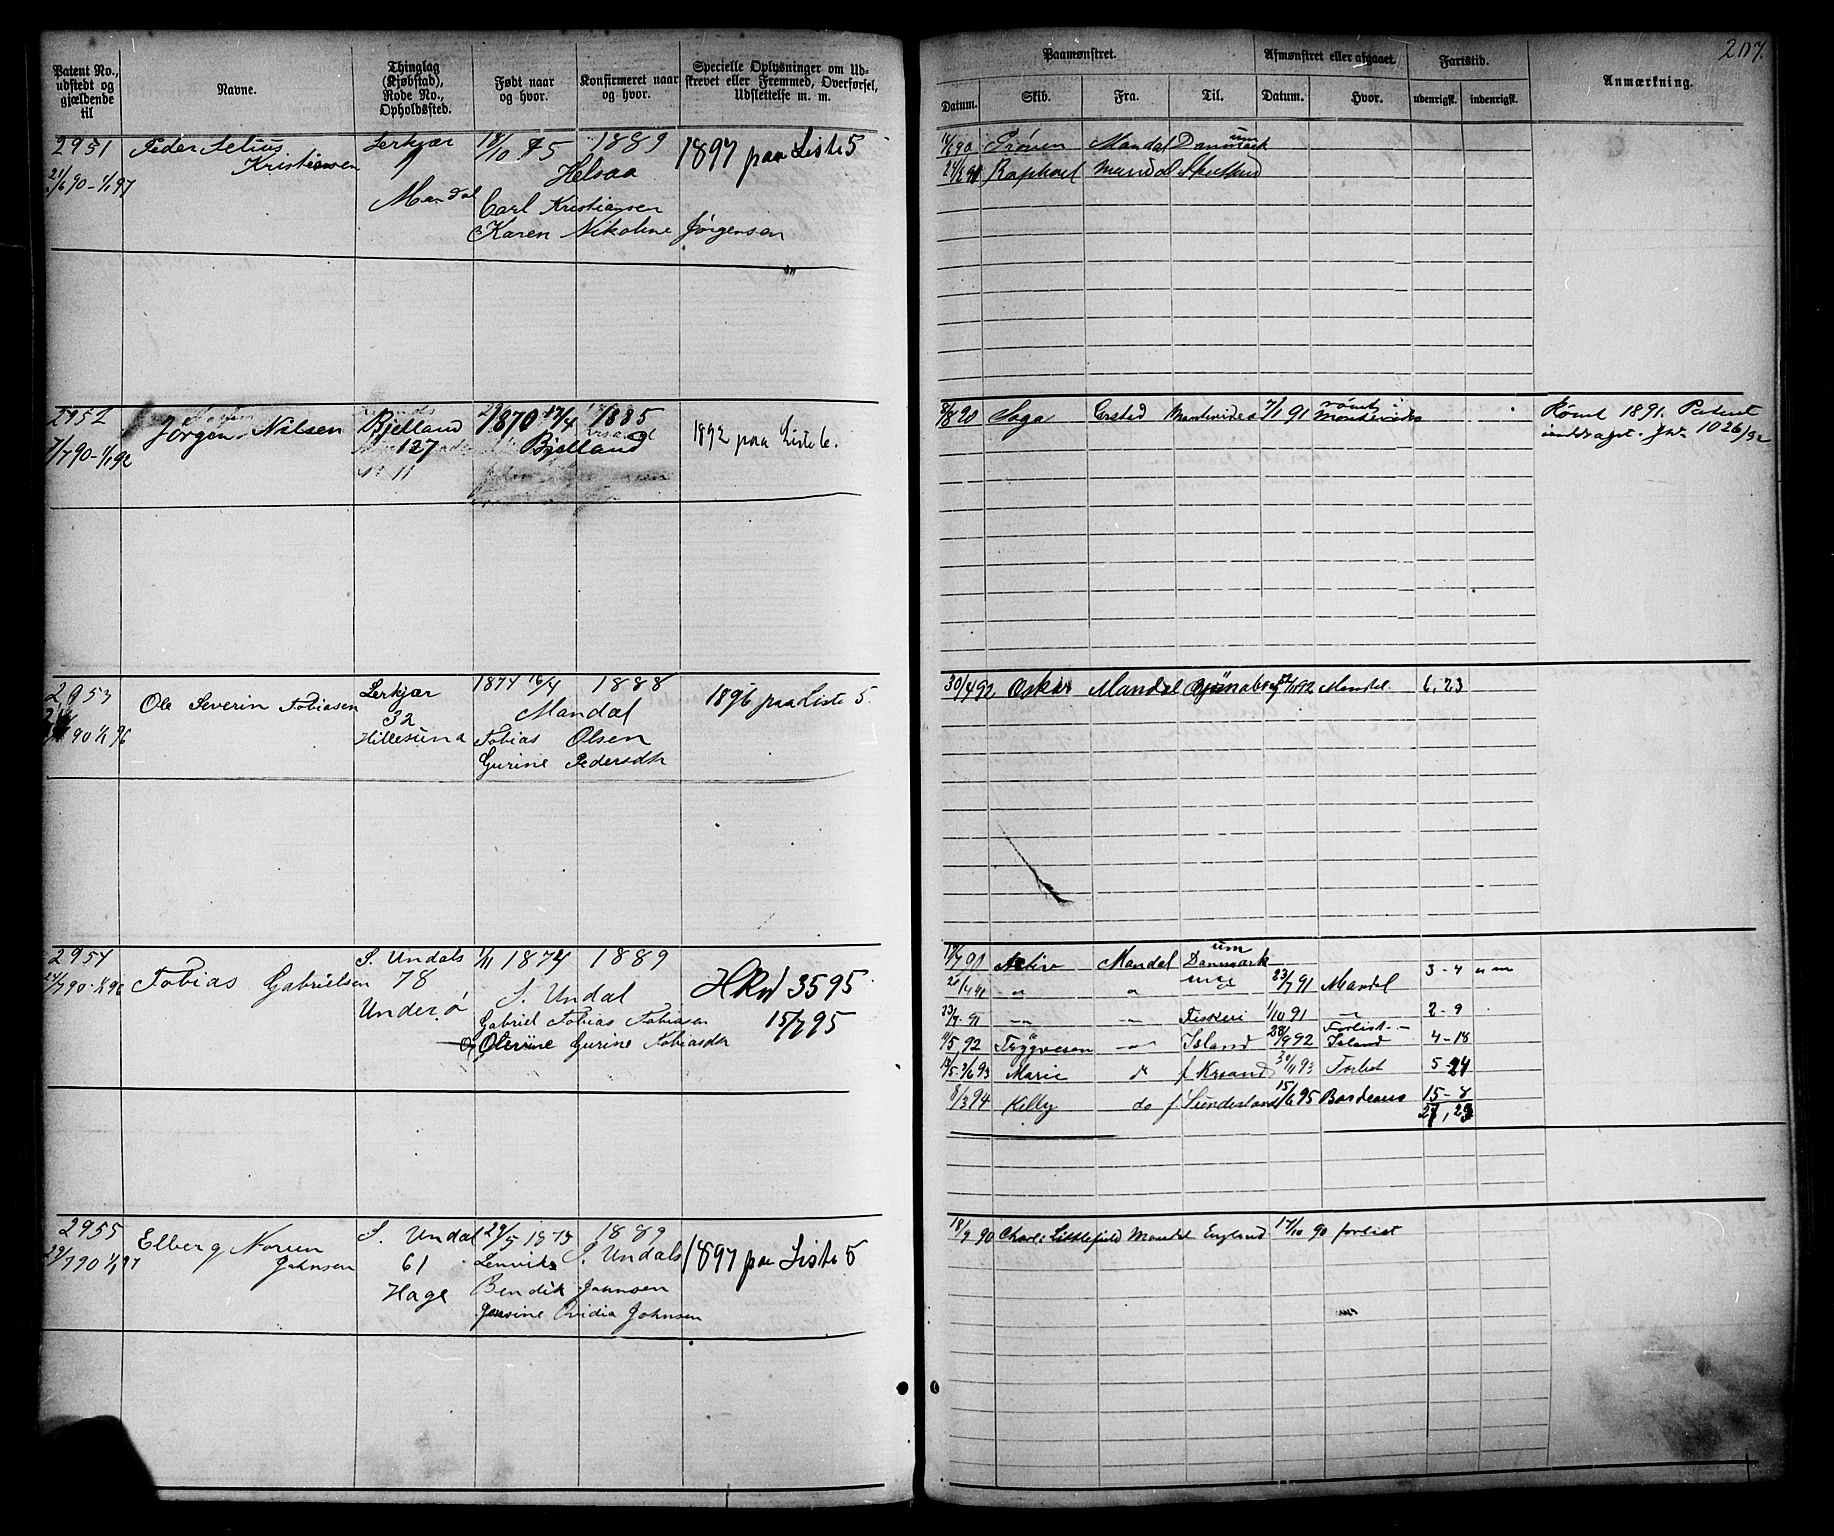 207.
Patent No., udstedt og gjældende til
Navne.
Thinglag (Kjøbstad), Rode No., Opholdssted.
Født naar og hvor.
Konfirmeret naar og hvor.
Specielle Oplysninger om Udskrevet eller Fremmed, Overførsel, Udslettelse m. m.
Paamønstret.
Afmønstret eller afgaaet.
Fartstid.
Anmærkning.
Datum.
Skib.
Fra.
Til.
Datum.
Hvor.
udenrigsk.
indenrigsk.
2951
21/6 90 - 1/1 97
Peder Selius
Kristiansen
Lerkjær
9
Mandal
18/10 75
1889
Helsaa
Carl Kristiansen
Karen Nikoline Jørgensen
1897 paa Liste 5
Mandal Danmark
Raphael Mandal
2952
7/7 90 - 1/1 92
Jørgen Nilsen
Bjelland
127
1870 17/4 1885
Bjelland
1892 paa Liste 6.
Saga
Montevideo
7/1 91
rømt Montevideo
Rømt 1891. Patent
inddraget. Jnr. 1026/92
2953
90 1/1 96
Ole Severin Tobiasen
Lerkjær
32
Hillesund
1874 16/4 1888
Mandal
Tobias Olsen
Gurine Pedersdtr
1896 paa Liste 5.
30/4 92 Oskar Mandal
92 Mandal. 6,23
2954
24/7 90 - 1/1 96
Tobias Gabrielsen
S. Undals
78
Underø
1/11 1874 1889
S. Undal
Gabriel Tobias Tobiasen
Og Olevine Gurine Tobiasdtr
HRul 3595
15/7 95
Active Mandal Danmark um
23/7 91 Mandal 3-4
91 Fiskeri 1/10 91 2-9
9/5 92 Tryggvesen Island 28/9 92 Forlist Island 4-18
Marie do f Krsand 30/11 93 Forlist 5-24
8/3 94 Kelly do f Sunderland 15/6 95 Bordeaux 15-8
27,29
2955
29/7 90 1/1 97
Elberg Norum
Johnsen
S. Undal
61
Hage
29/5 1875 1889
Lenvik S. Undals
Bendik Johnsen
Jensine Ovidia Johnsen
1897 paa Liste 5
18/9 90 Charl. Littlefield Mandal England 17/10 90 forlist